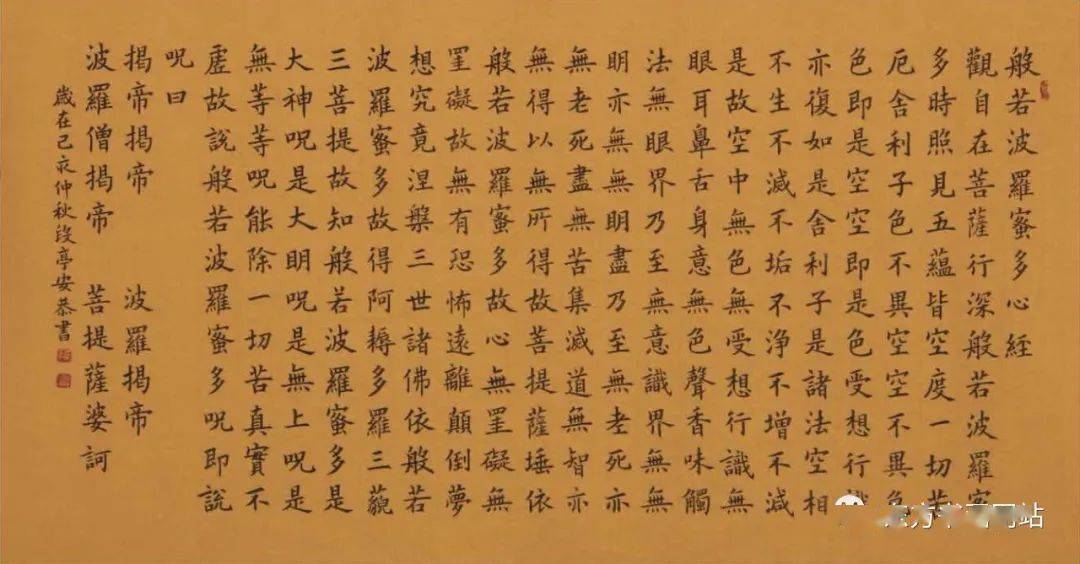 般若波羅蜜多心経
觀自在菩薩行深般若波羅蜜
多時照見五蘊皆空度一切苦
厄舍利子色不異空空不異色
色即是空空即是色受想行識
亦復如是舍利子是諸法空相
不生不滅不垢不淨不增不減
是故空中無色無受想行識無
眼耳鼻舌身意無色聲香味觸
法無眼界乃至無意識界無無
明亦無無明盡乃至無老死亦
無老死盡無苦集滅道無智亦
無得以無所得故菩提薩埵依
般若波羅蜜多故心無罣礙無
罣礙故無有恐怖遠離顛倒夢
想究竟涅槃三世諸佛依般若
波羅蜜多故得阿耨多羅三藐
三菩提故知般若波羅蜜多是
大神咒是大明咒是無上咒是
無等等咒能除一切苦真實不
虛故說般若波羅蜜多咒即說
咒曰
揭帝揭帝 波羅揭帝
波羅僧揭帝 菩提薩婆訶
歲在己亥仲秋段亭安恭書
网站